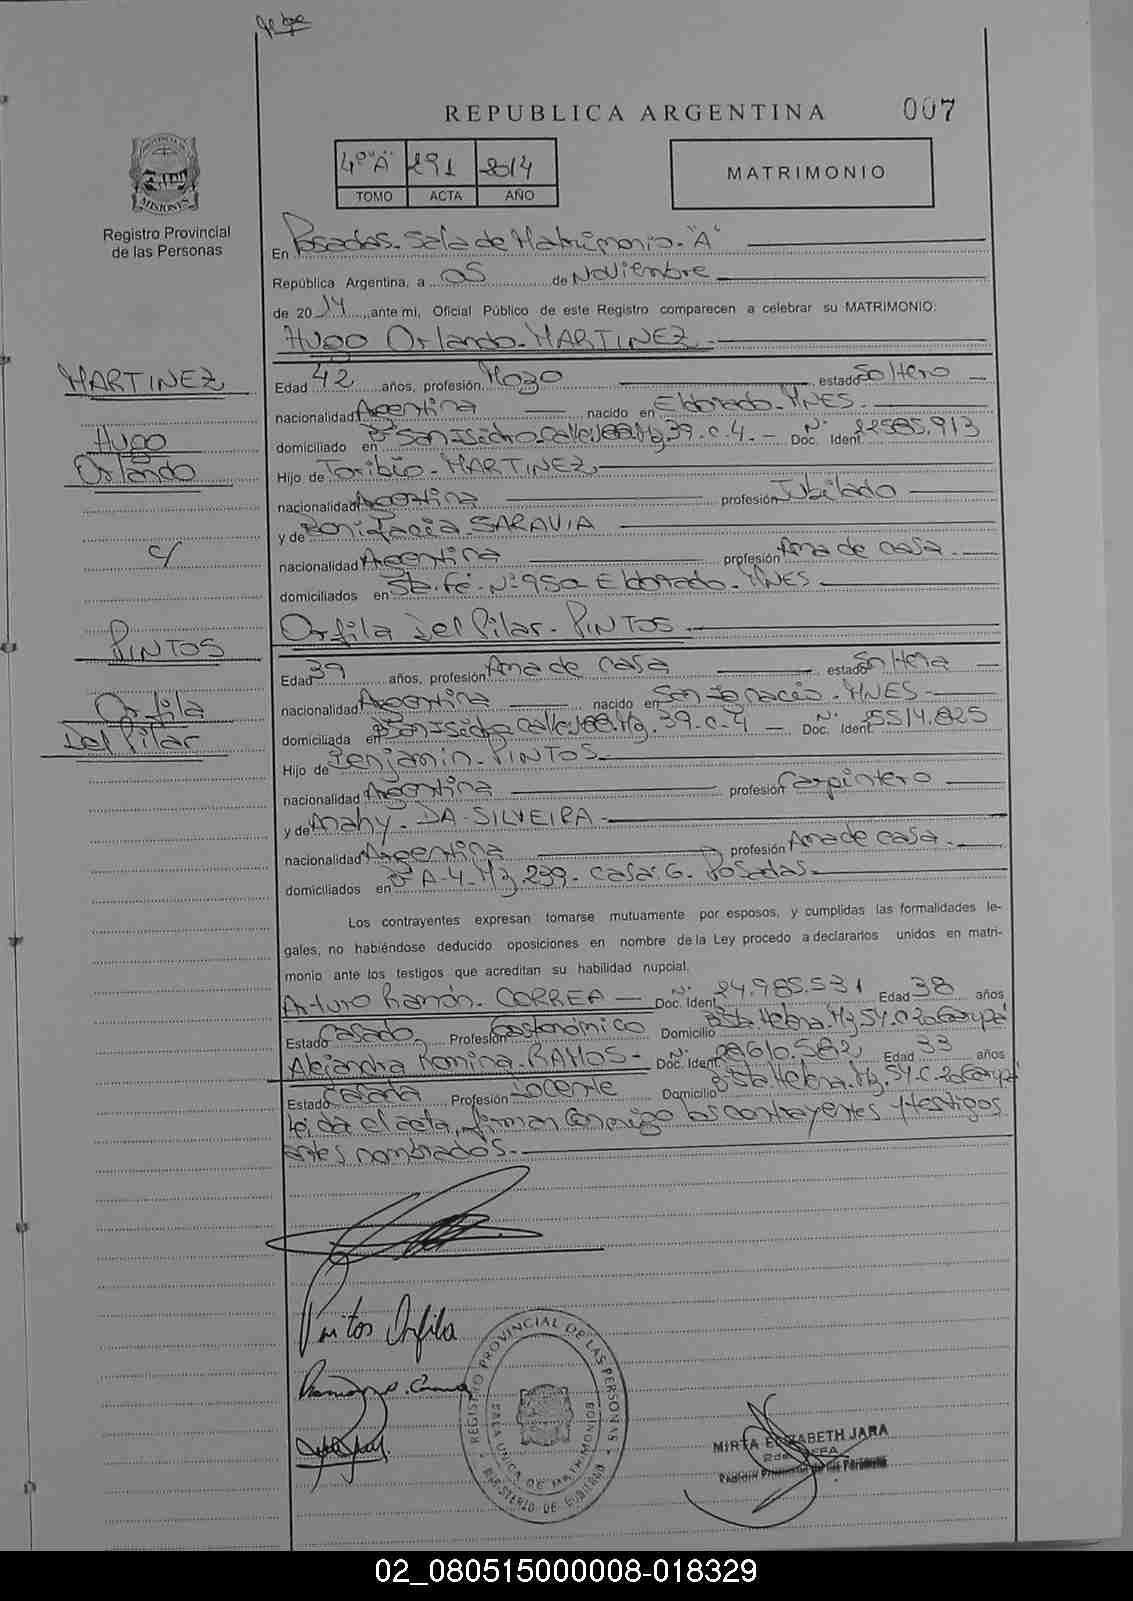 REPUBLICA ARGENTINA
007
4º "A" 291 2014
TOMO ACTA AÑO
MATRIMONIO
PROVINCIA
MISIONES
Registro Provincial
de las Personas
En Posadas. Sala de Matrimonio. "A"
República Argentina, a 05 de Noviembre
de 2014, ante mi, Oficial Público de este Registro comparecen a celebrar su MATRIMONIO:
Hugo Orlando. MARTINEZ
MARTINEZ
Hugo
Orlando
c/
PINTOS
Orfila
Del Pilar
Edad 42 años, profesión Mozo, estado Soltero
nacionalidad Argentina nacido en Eldorado. MNES.
domiciliado en Bº San Isidro. Calle Mz. 39. C. 4. Doc. Ident. Nº 22585.913
Hijo de Toribio. MARTINEZ
nacionalidad Argentina profesión Jubilado
y de Bonifacia. SARAVIA
nacionalidad Argentina profesión Ama de casa.
domiciliados en Sta. Fé. Nº 950 Eldorado. MNES
Orfila Del Pilar. PINTOS.
Edad 39 años, profesión Ama de casa, estado Soltera
nacionalidad Argentina nacido en San Ignacio. MNES.
domiciliada en Bº San Isidro Calle Mz. 39. C. 4 Doc. Ident. Nº 5514.825
Hijo de Benjamin. PINTOS
nacionalidad Argentina profesión Carpintero
y de Anahy. DA SILVEIRA.
nacionalidad Argentina profesión Ama de casa.
domiciliados en Bº A-4. Mz 299. Casa: 6. Posadas.
Los contrayentes expresan tomarse mutuamente por esposos, y cumplidas las formalidades le-
gales, no habiéndose deducido oposiciones en nombre de la Ley procedo a declararlos unidos en matri-
monio ante los testigos que acreditan su habilidad nupcial.
Arturo Ramón. CORREA Doc. Ident. Nº 24.985.531 Edad 38 años
Estado Casado Profesión Gastronómico Domicilio Bº Sta. Helena. Mz 54. C. 20 Garupá
Alejandra Romina. RAMOS Doc. Ident. Nº 28610.582 Edad 33 años
Estado Casada Profesión Docente Domicilio Bº Sta. Helena. Mz. 54. C. 20 Garupá
Leída el acta, firman conmigo los contrayentes y testigos
antes nombrados.
Pintos Orfila
REGISTRO PROVINCIAL DE LAS PERSONAS
SALA UNICA DE MATRIMONIOS
MINISTERIO DE GOBIERNO
MIRTA ELIZABETH JARA
Registro Provincial de las Personas
02_080515000008-018329